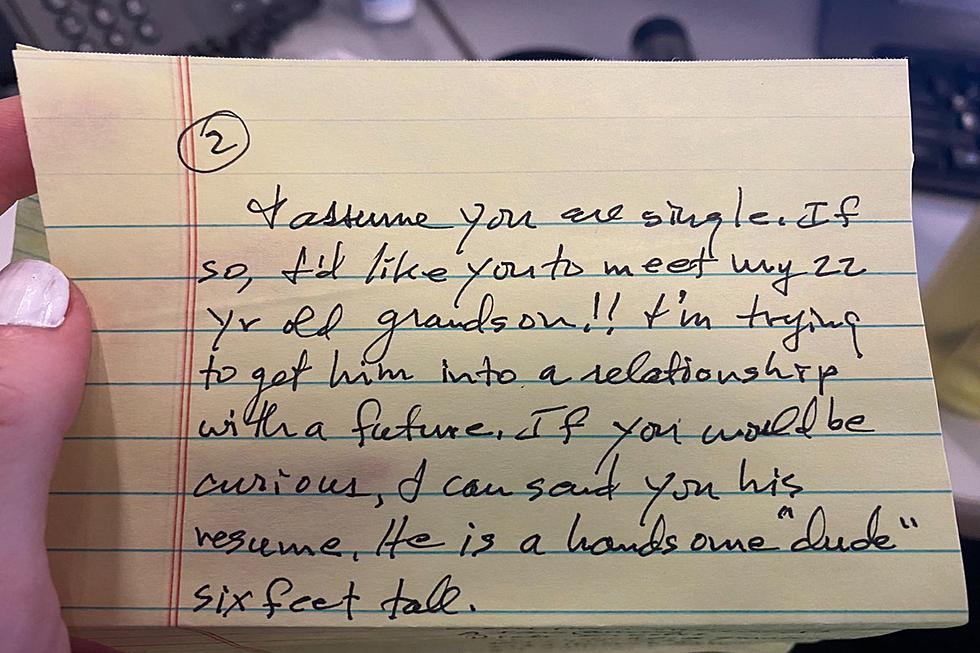 2
I assume you are single. If
so, I'd like you to meet my 22
yr old grandson!! I'm trying
to get him into a relationship
with a future. If you would be
curious, I can send you his
resume. He is a handsome "dude"
six feet tall.